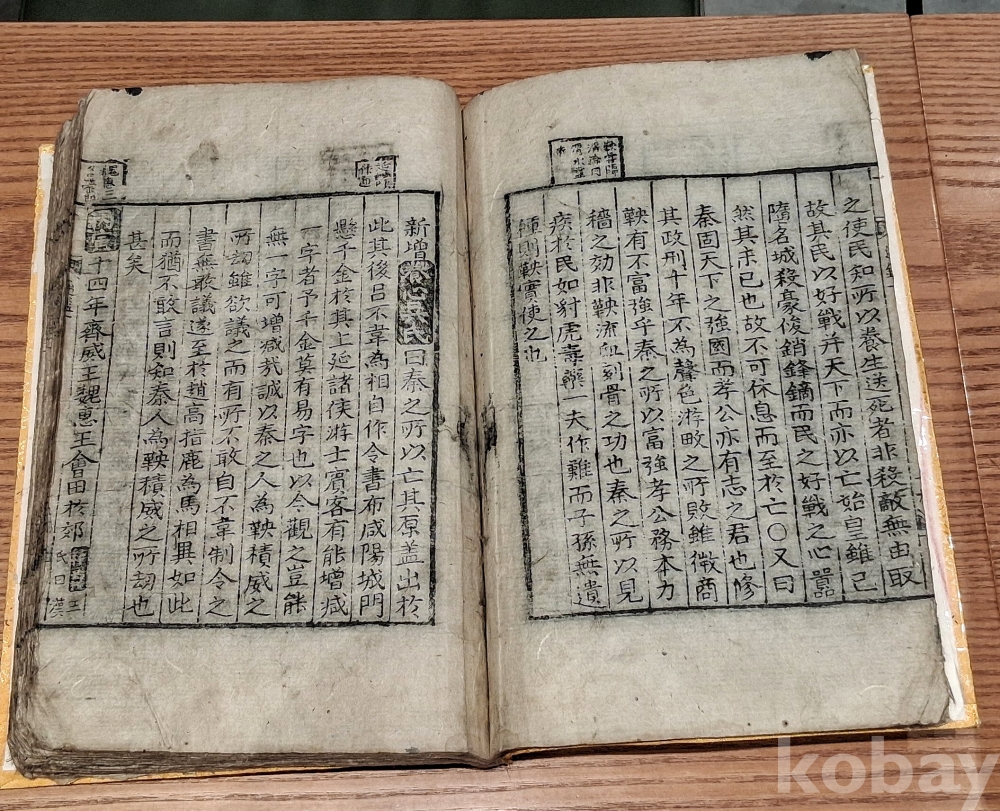 之使民知所以養生送死者非殺敵無由取
故其民以好戰并天下而亦以亡始皇雖已
隳名城殺豪俊銷鋒鏑而民之好戰之心囂
然其未已也故不可休息而至於亡〇又曰
秦固天下之強國而孝公亦有志之君也修
其政刑十年不為聲色游畋之所敗雖微商
鞅有不富強乎秦之所以富強孝公務本力
穡之効非鞅流血刻骨之功也秦之所以見
疾於民如豺虎毒藥一夫作難而子孫無遺
種則鞅實使之
新增 曰秦之所以亡其原盖出於
此其後呂不韋為相自作令書布咸陽城門
懸千金於其上延諸侯游士賓客有能增減
一字者予千金莫有易字也以今觀之豈能
無一字可增减哉誠以秦之人為鞅積威之
所刼雖欲議之而有所不敢自不韋制令之
書無敢議遂至於趙高指鹿為馬相與如此
而猶不敢言則知秦人為鞅積威之所刼也
甚矣
十四年齊威王魏惠王會田於郊
kobay